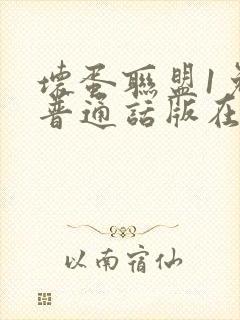 壞蛋聯盟1免
普通話版在
以南宿仙